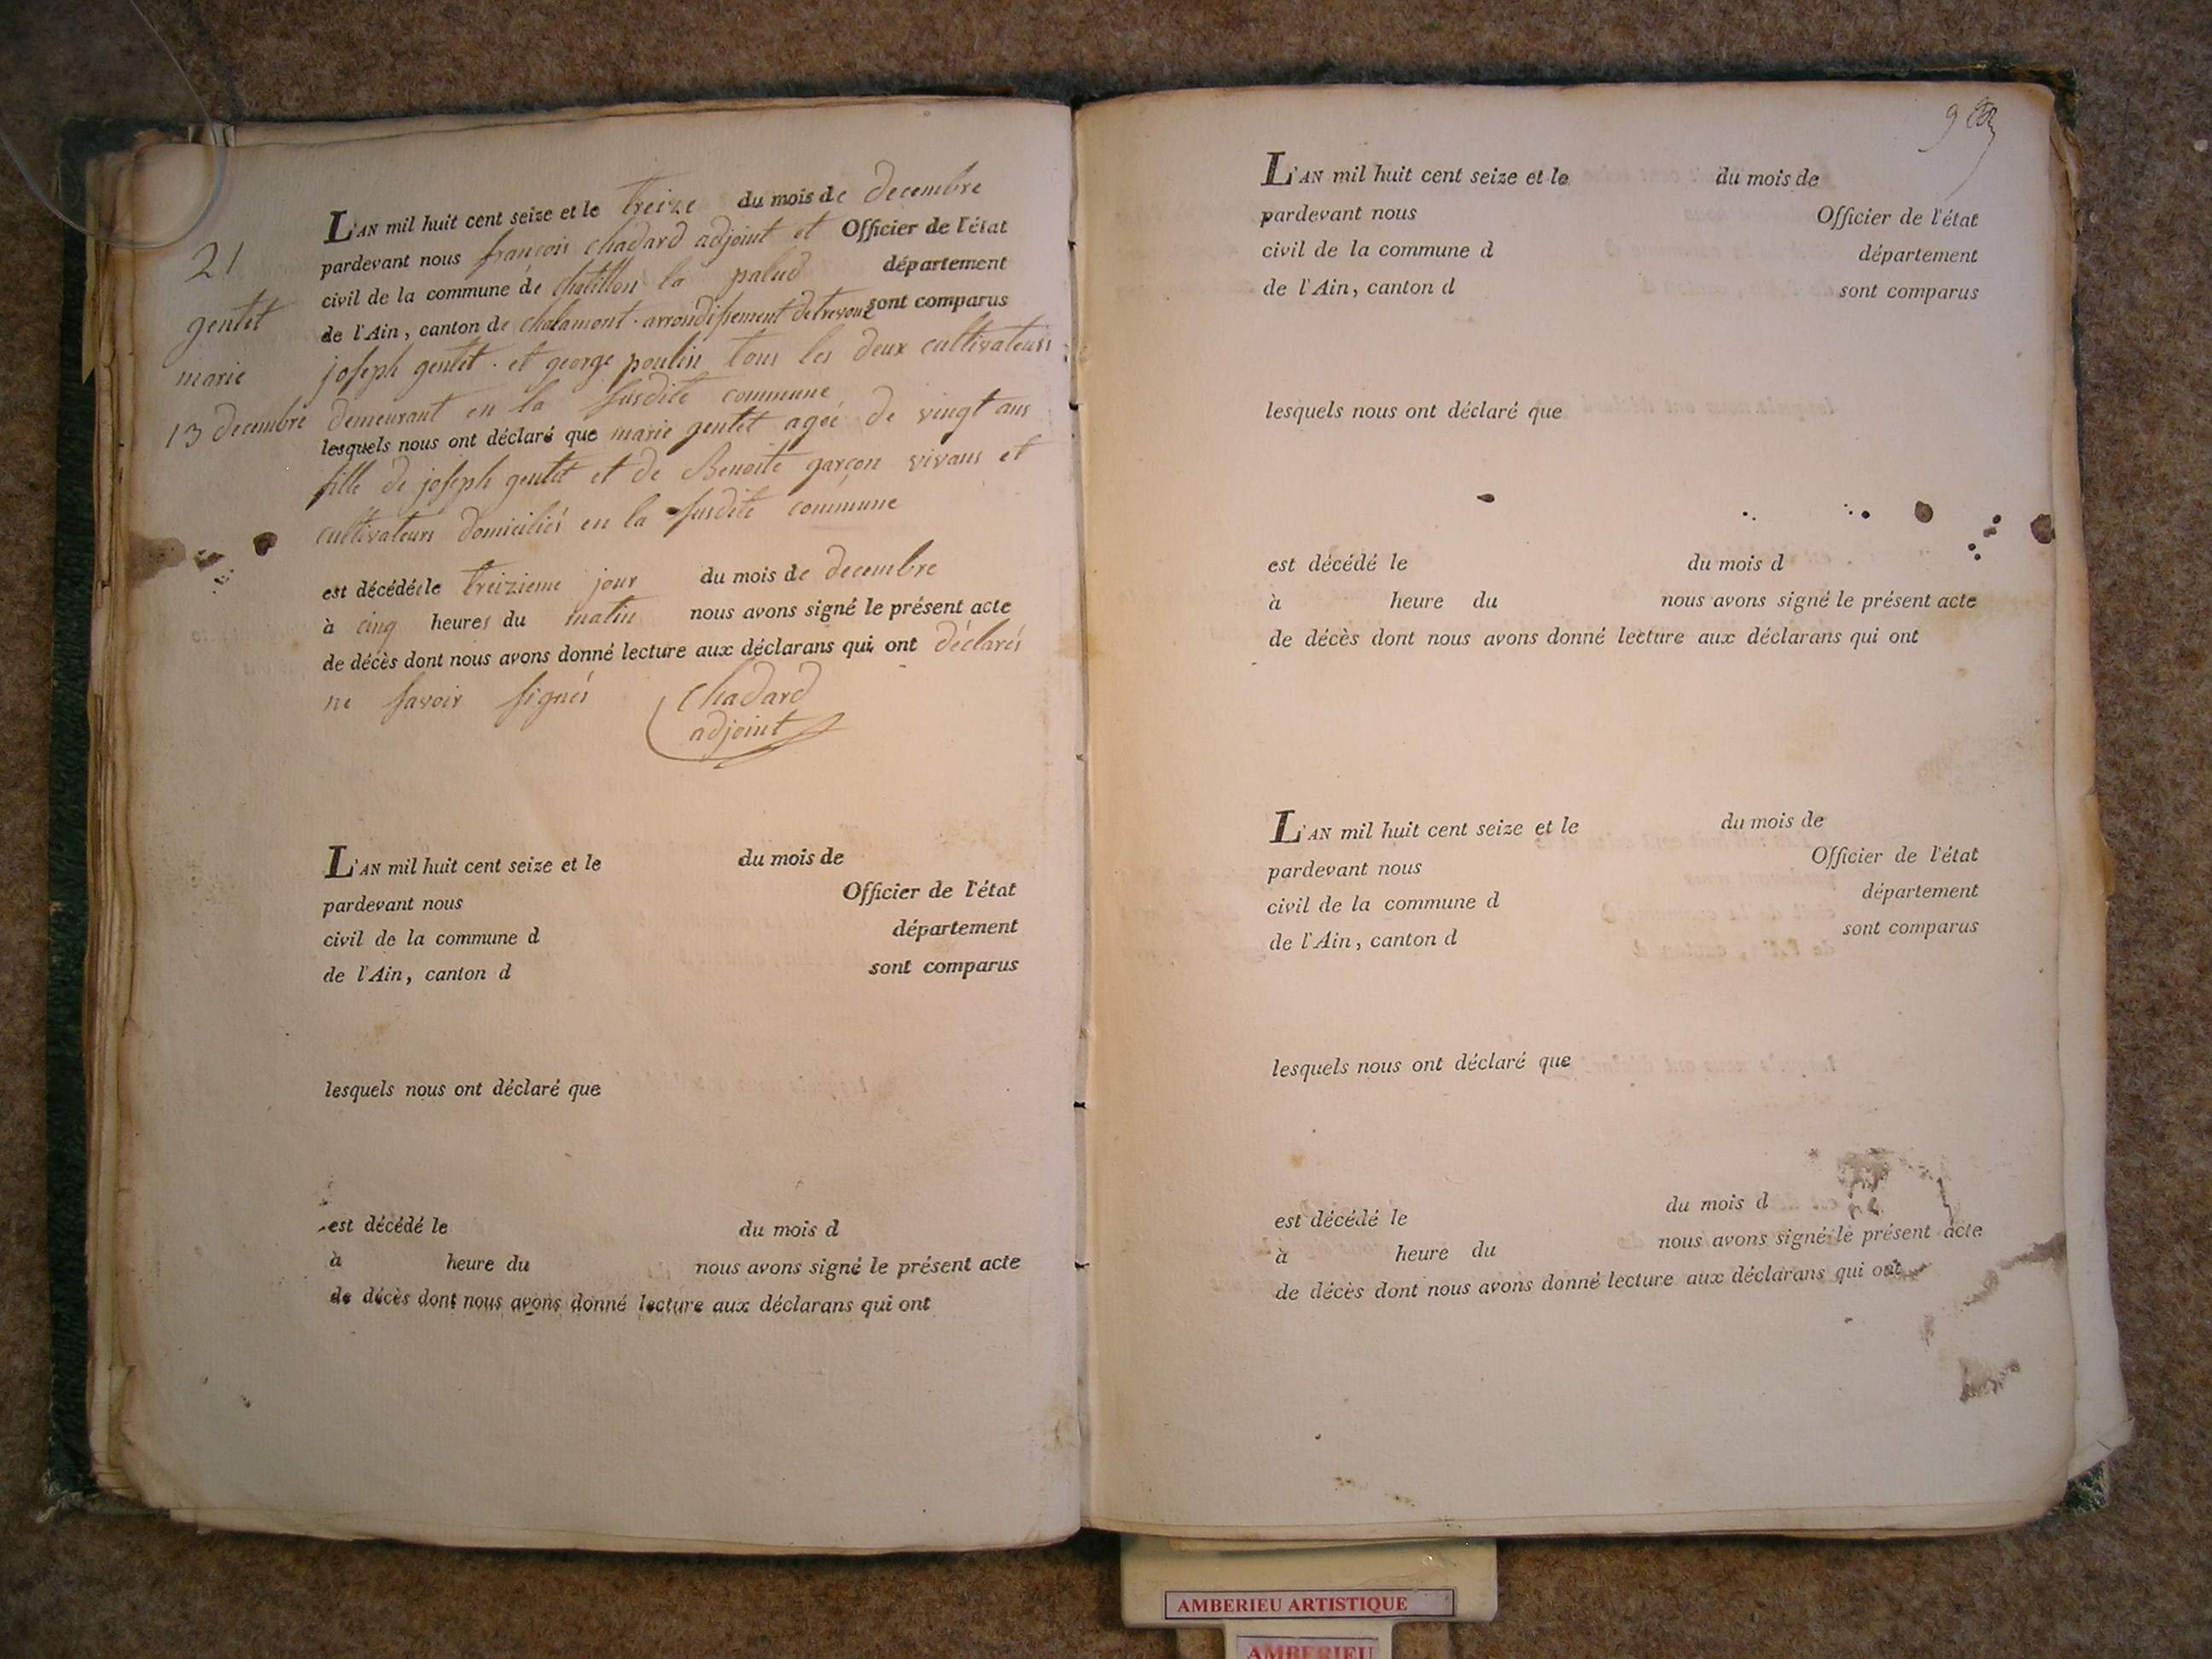 21
gentet
marie
13 decembre
L'AN mil huit cent seize et le treize du mois de decembre
pardevant nous françois chadard adjoint et Officier de l'état
civil de la commune de chatillon la palud département
de l'Ain, canton de chalamont. arrondissement de trevoux sont comparus
joseph gentet. et george poulin tous les deux cultivateurs
demeurant en la susdite commune
lesquels nous ont déclaré que marie gentet agée de vingt ans
fille de joseph gentet et de Benoite garçon vivans et
cultivateurs domiciliés en la susdite commune
est décédée le treizieme jour du mois de decembre
à cinq heures du matin nous avons signé le présent acte
de décès dont nous avons donné lecture aux déclarans qui ont déclarés
ne savoir signés chadard
adjoint
L'AN mil huit cent seize et le du mois de
pardevant nous Officier de l'état
civil de la commune d département
de l'Ain, canton d sont comparus
lesquels nous ont déclaré que
est décédé le du mois d
à heure du nous avons signé le présent acte
de décès dont nous avons donné lecture aux déclarans qui ont
9
L'AN mil huit cent seize et le du mois de
pardevant nous Officier de l'état
civil de la commune d département
de l'Ain, canton d sont comparus
lesquels nous ont déclaré que
est décédé le du mois d
à heure du nous avons signé le présent acte
de décès dont nous avons donné lecture aux déclarans qui ont
L'AN mil huit cent seize et le du mois de
pardevant nous Officier de l'état
civil de la commune d département
de l'Ain, canton d sont comparus
lesquels nous ont déclaré que
est décédé le du mois d
à heure du nous avons signé le présent acte
de décès dont nous avons donné lecture aux déclarans qui ont
AMBERIEU ARTISTIQUE
AMBERIEU